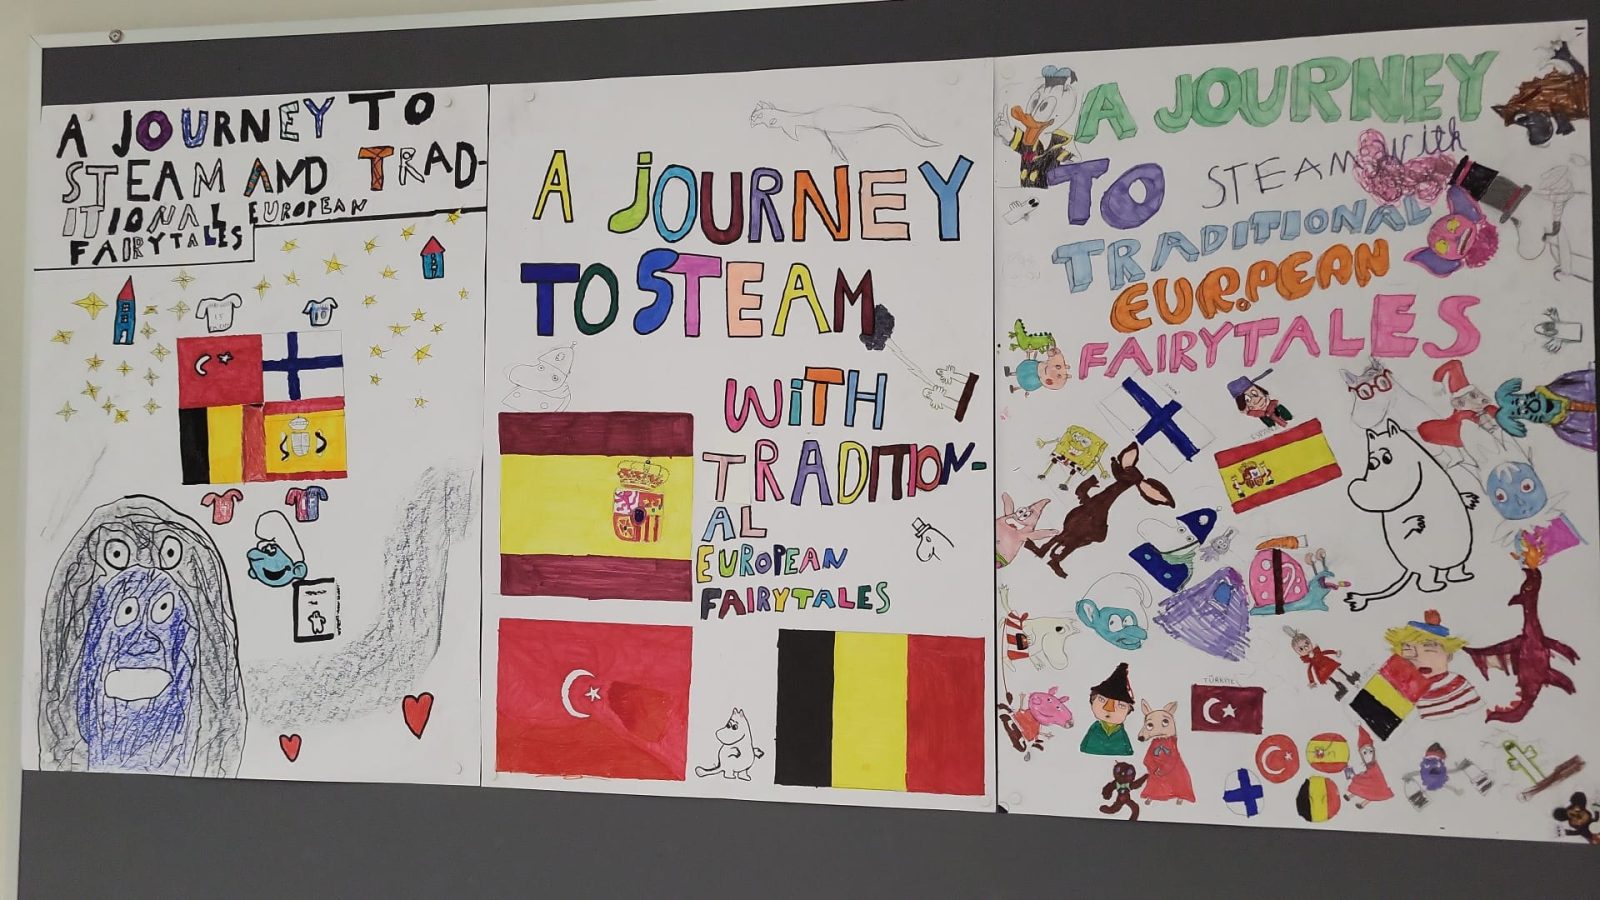 A JOURNEY TO
STEAM AND TRAD-
ITIONAL EUROPEAN
FAIRYTALES
A JOURNEY
TO STEAM
WITH
TRADITION-
AL
EUROPEAN
FAIRYTALES
A JOURNEY
TO STEAM with
TRADITIONAL
EUROPEAN
FAIRYTALES
TÜRKIYE